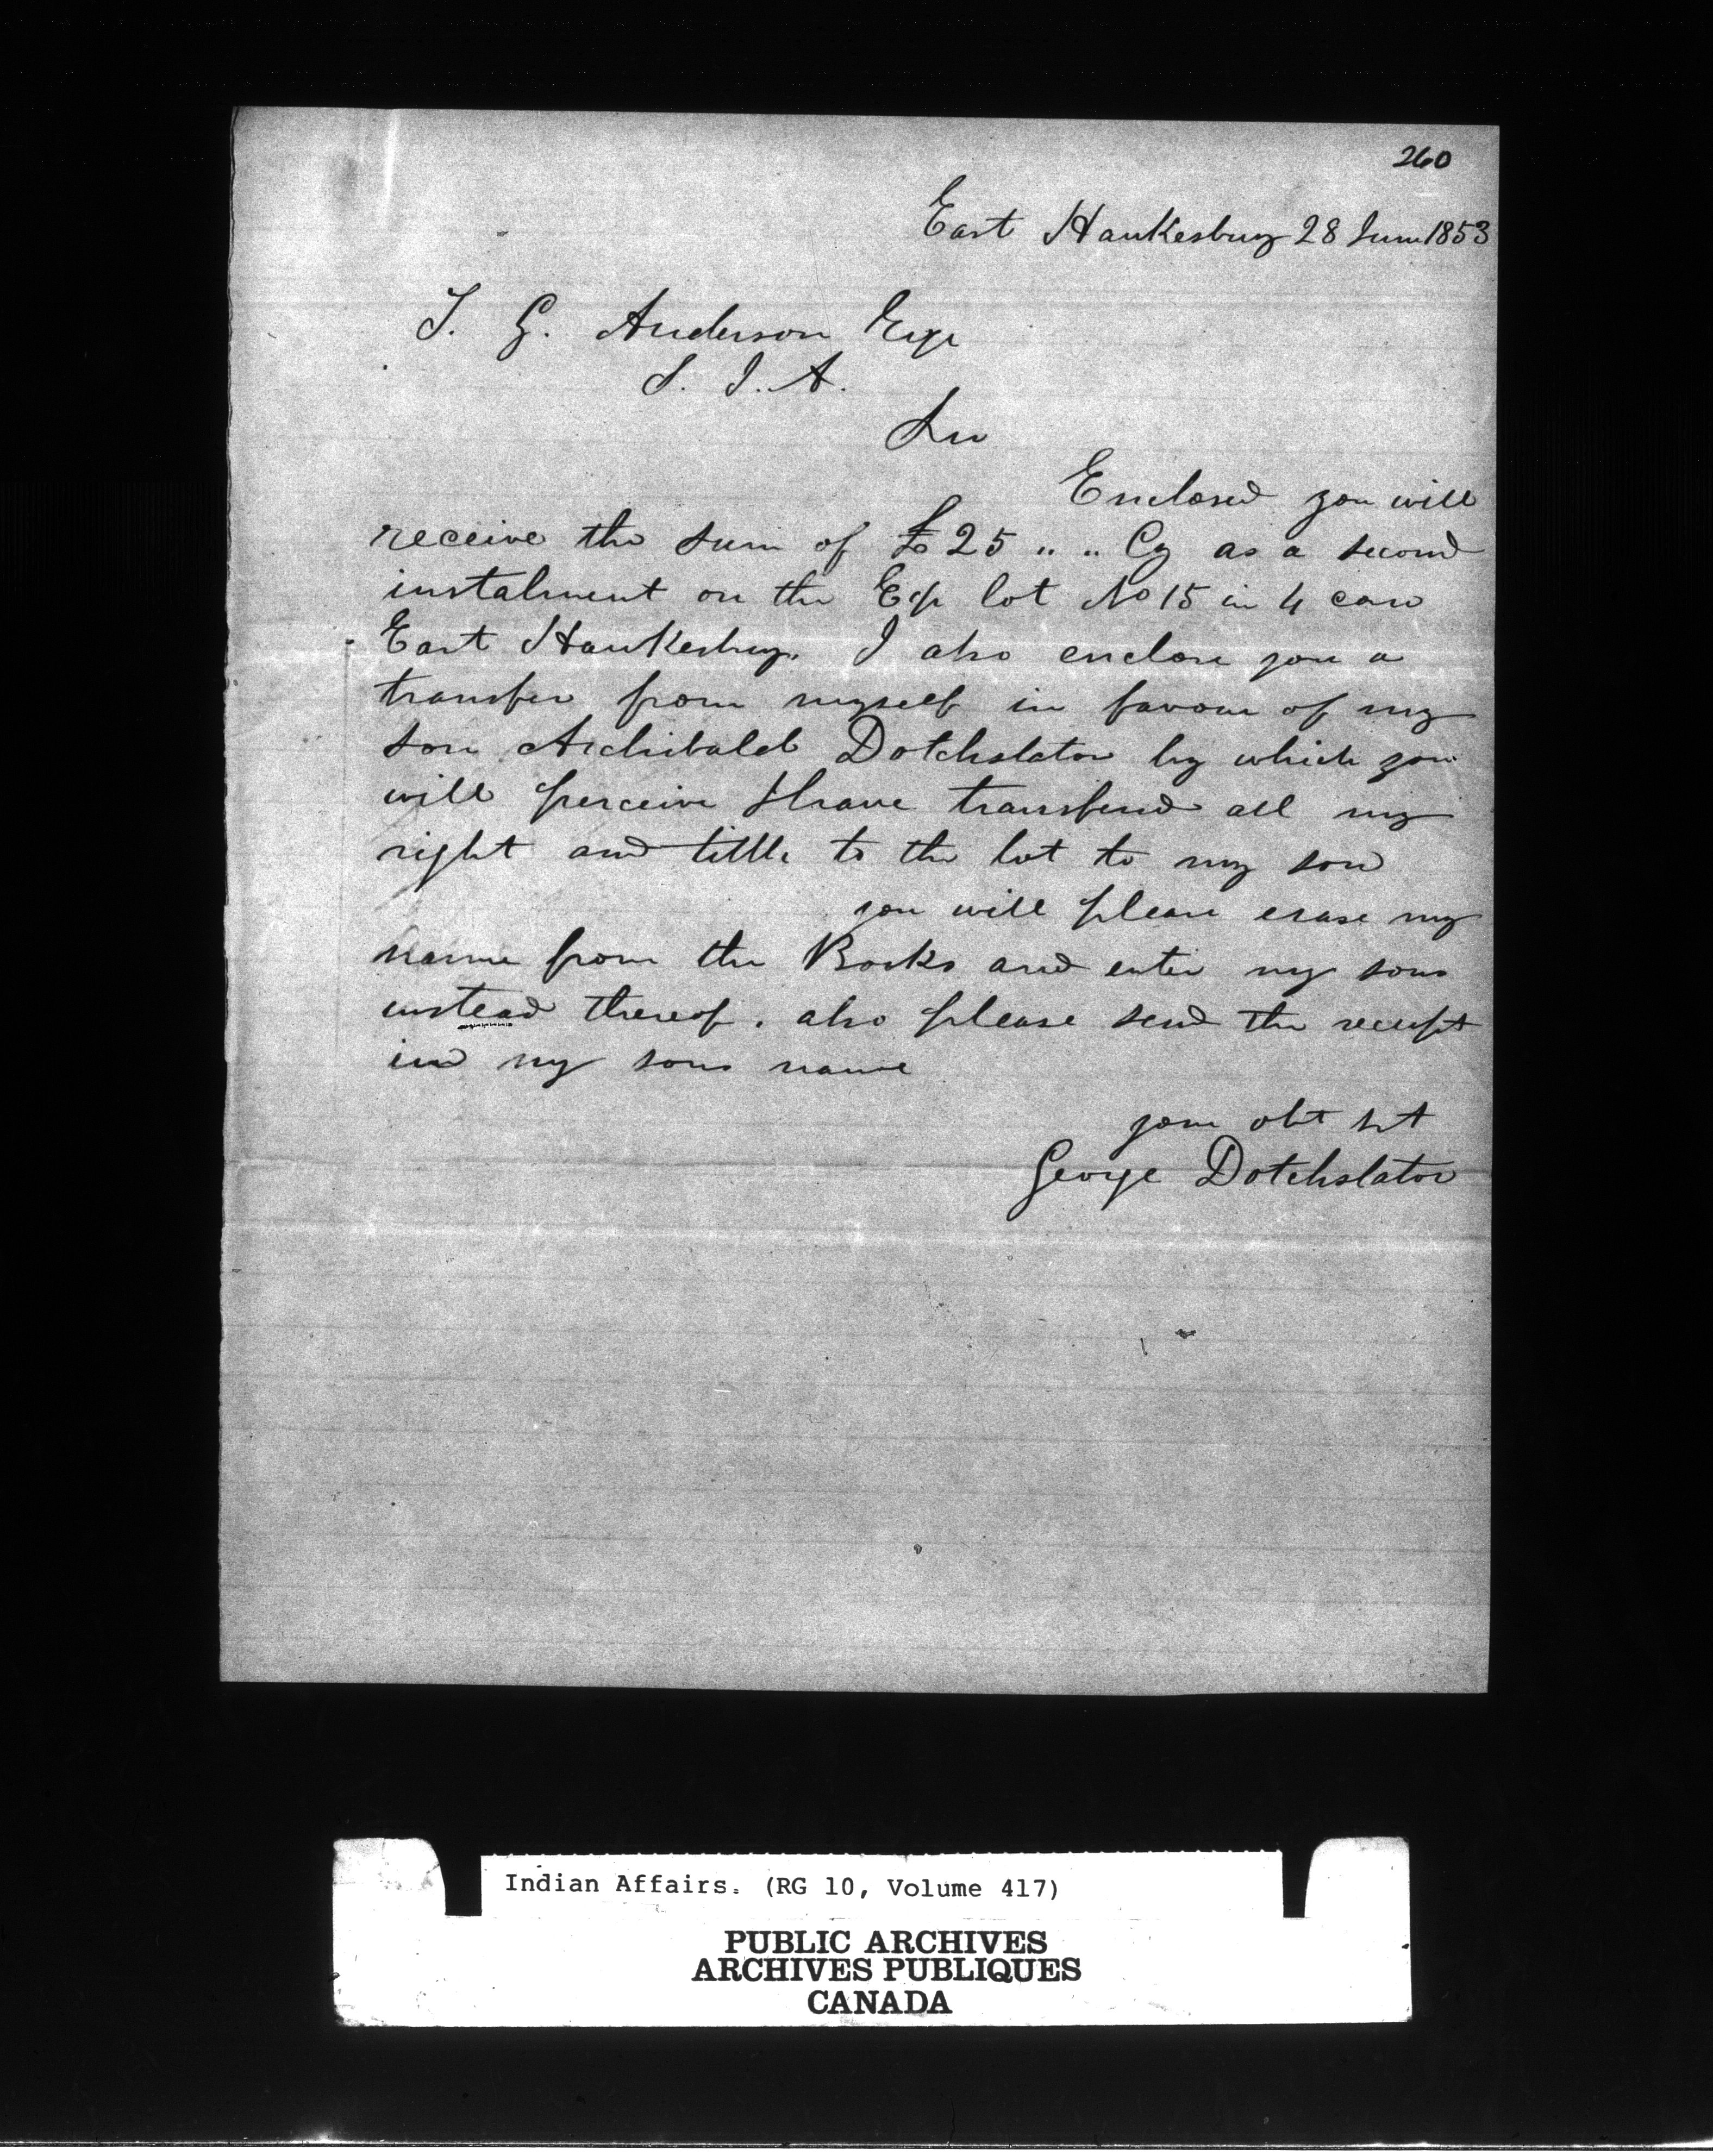 260
East Haukesbury 28 June 1853
T. G. Anderson Esqr
S. I. A.
Sir
Enclosed you will
receive the sum of £25 " " Cy as a second
instalment on the E½ lot No 15 in 4 con
East Haukesbury. I also enclose you a
transfer from myself in favour of my
son Archibald Dotchslator by which you
will perceive I have transferd all my
right and tittle to the lot to my son
you will please erase my
name from the Books and enter my sons
instead thereof. also please send the receipt
in my sons name
your obt svt
George Dotchslator
Indian Affairs. (RG 10, Volume 417)
PUBLIC ARCHIVES
ARCHIVES PUBLIQUES
CANADA